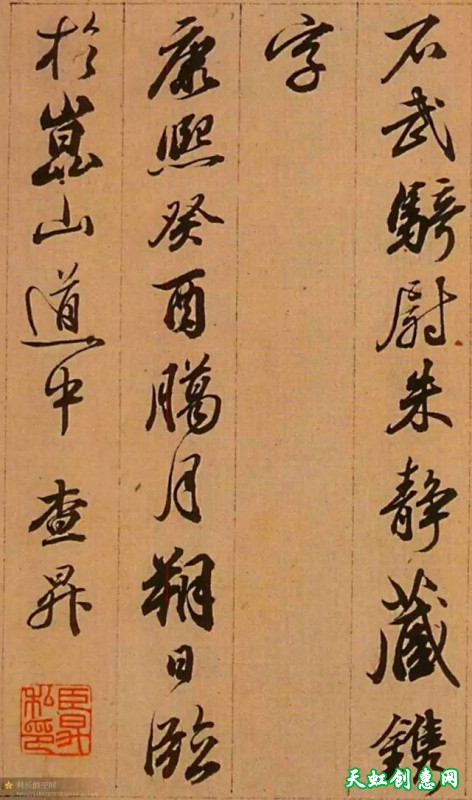 石武騎尉朱静藏鐫
字
康熙癸酉臈月朔日臨
於崑山道中 查昇
臣昇私印
天虹创意网